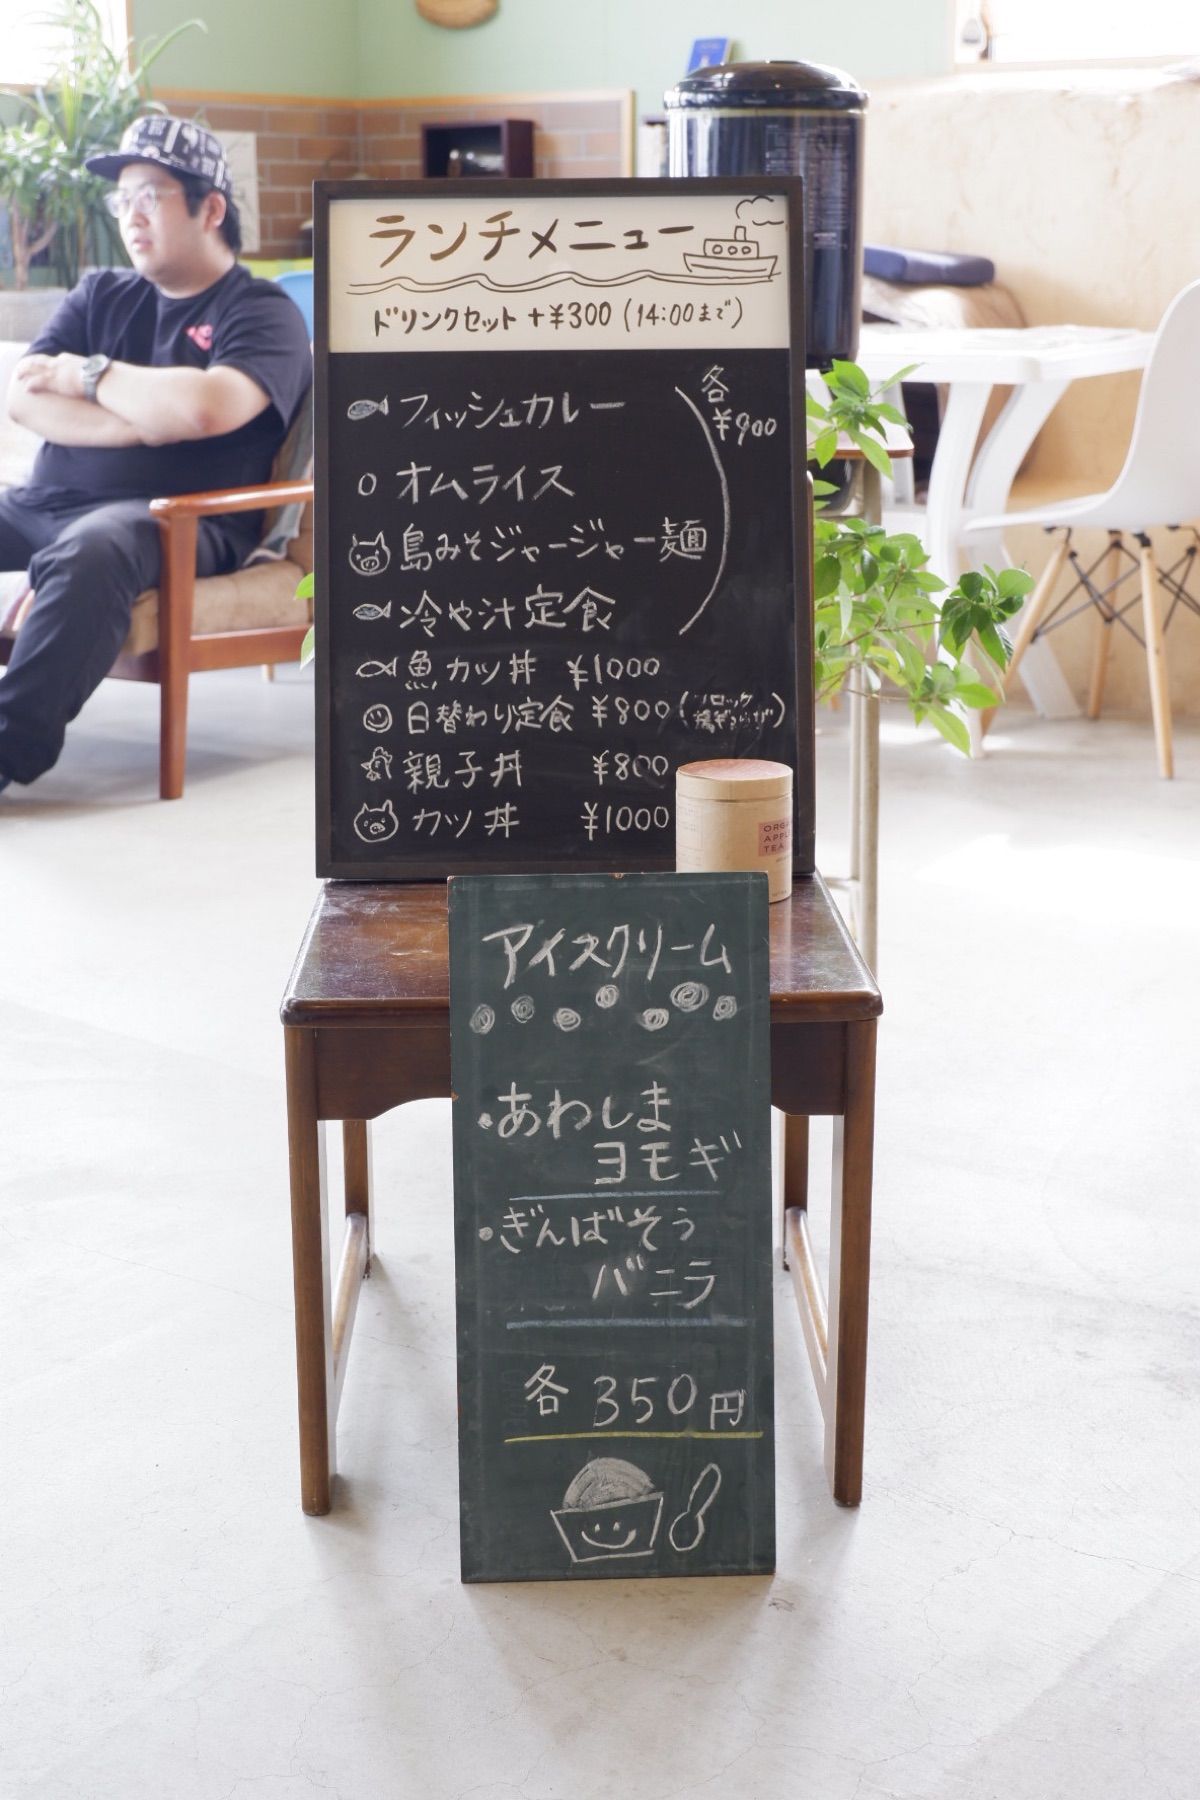 ランチメニュー
ドリンクセット +¥300 (14:00まで)
フィッシュカレー
オムライス
島みそジャージャー麺
冷や汁定食
各
¥900
魚カツ丼 ¥1000
日替わり定食 ¥800
親子丼 ¥800
カツ丼 ¥1000
TEA
アイスクリーム
・あわしま
ヨモギ
・ぎんばそう
バニラ
各 350円